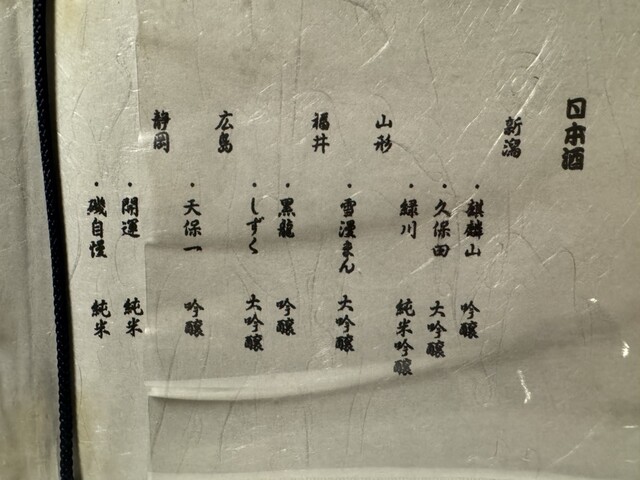 日本酒
新潟
・麒麟山 吟醸
・久保田 大吟醸
・緑川 純米吟醸
山形
・雪漫まん 大吟醸
福井
・黒龍 吟醸
・しずく 大吟醸
広島
・天保一 吟醸
静岡
・開運 純米
・磯自慢 純米